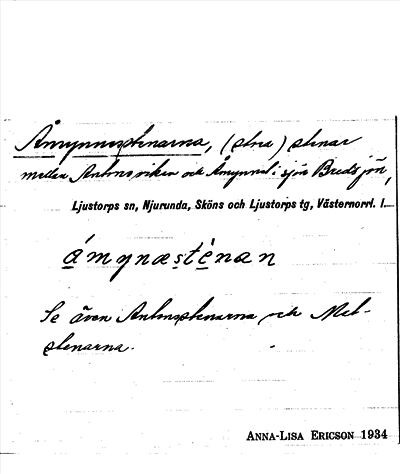 Åmynnesstenarna, (stra) stenar
mellan Antonsviken och Åmynnet i sjön Bredsjön,
Ljustorps sn, Njurunda, Sköns och Ljustorps tg, Västernorrl. l.
á̱mynæste̱̍nan
Se även Antonsstenarna och Mel-
stenarna.
ANNA-LISA ERICSON 1934